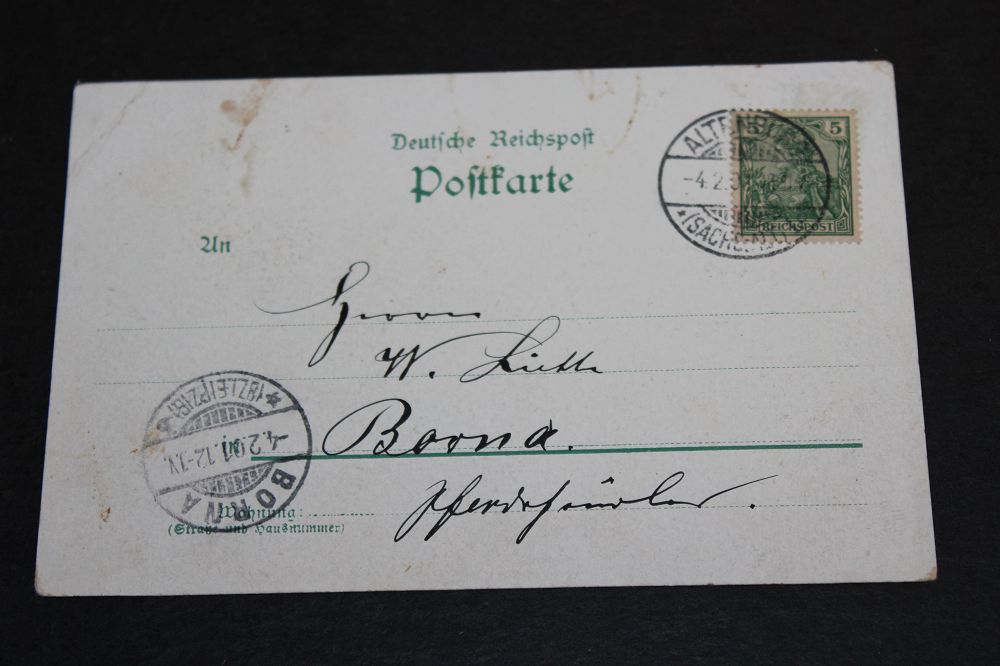 Deutsche Reichspost
Postkarte
ALTENBURG
-4.2.
(SACHS.
5 5
REICHSPOST
An
Herrn
W.
Borna.
Pferdehändler.
BORNA
4.2.01.12-1N.
*(BZ.LEIPZIG)*
Wohnung:
(Straße und Hausnummer)